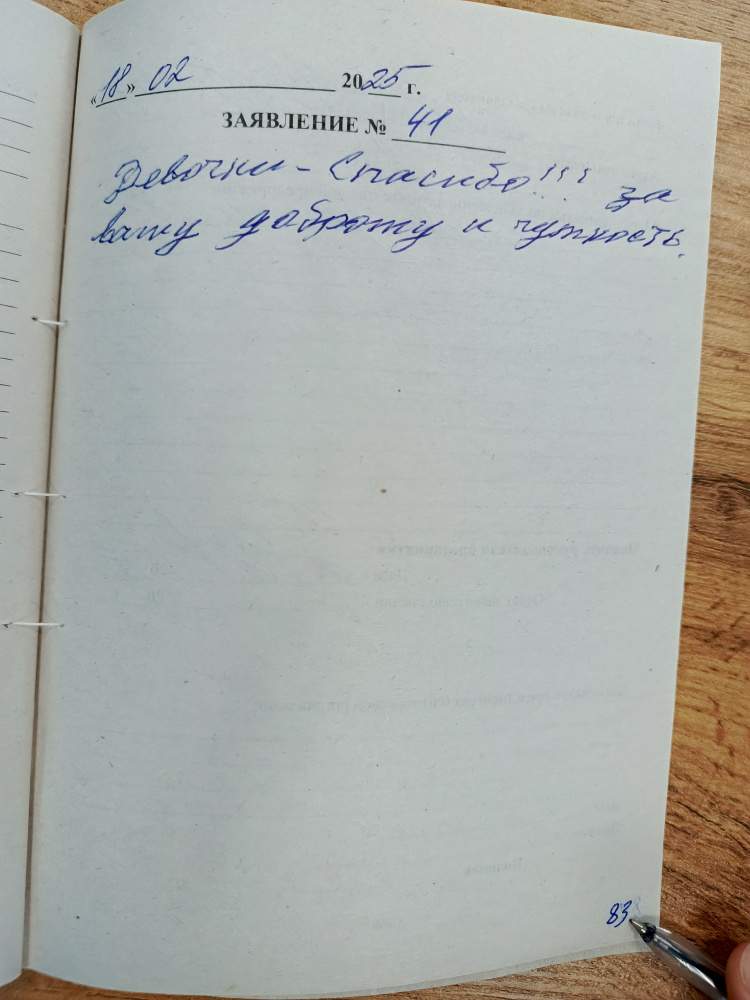 «18» 02 2025 г.
ЗАЯВЛЕНИЕ № 41
Девочки - Спасибо!!! за
вашу доброту и чуткость.
83